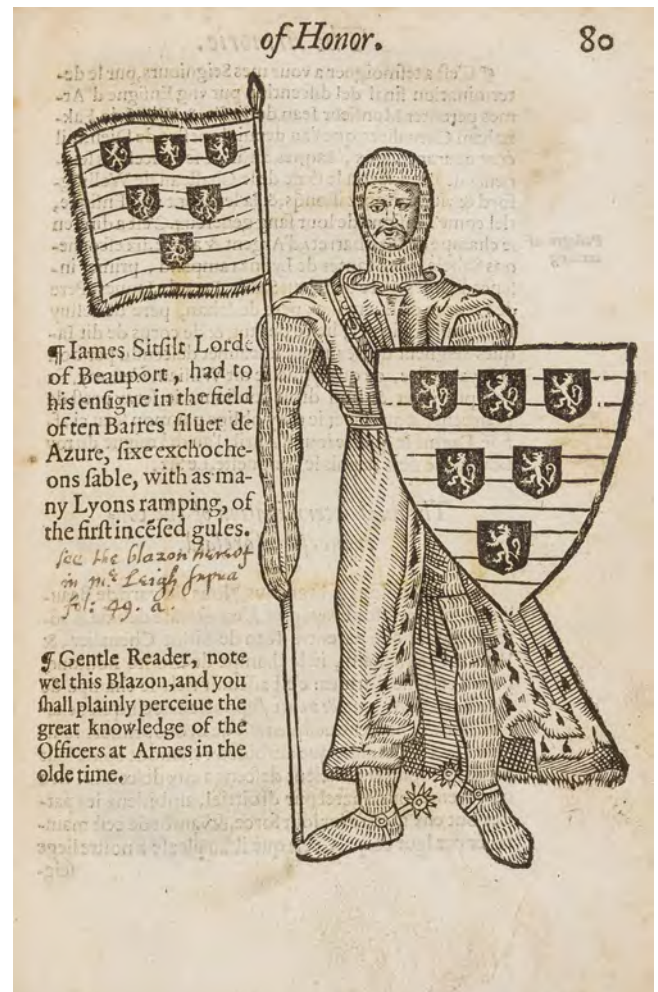 of Honor. 80
¶ Iames Sitſilt Lorde
of Beauport, had to
his enſigne in the field
of ten Barres ſiluer de
Azure, ſixe exchoche-
ons ſable, with as ma-
ny Lyons ramping, of
the firſt incẽſed gules.
ſee the blazon hereof
in mr Leigh ſupra
fol: 49. a.
¶ Gentle Reader, note
wel this Blazon, and you
ſhall plainly perceiue the
great knowledge of the
Officers at Armes in the
olde time.